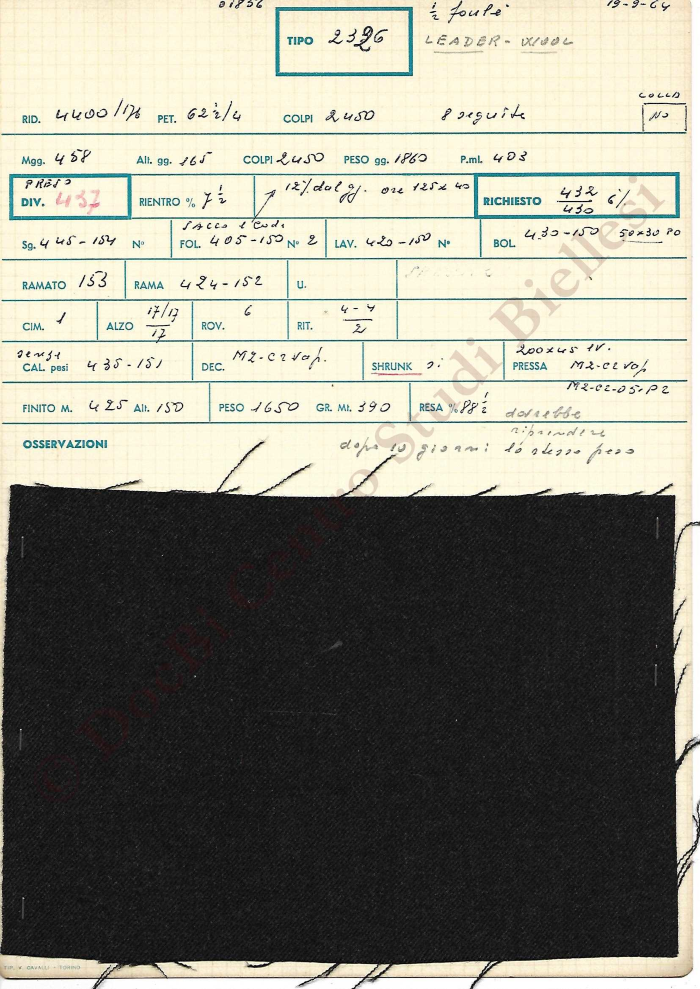 01856 ½ foulé 19-9-64
TIPO 2326 LEADER-
COLLA
RID. 4400/176 PET. 62½/4 COLPI 2450 8 seguite NO
Mgg. 458 Alt. gg. 165 COLPI 2450 PESO gg. 1860 P.ml. 403
PRESO
DIV. 437 RIENTRO % 7½ 12% dal gg. ore 125x40 RICHIESTO 432/430 6%
SACCO e Code
Sg. 445-154 N° FOL. 405-150 N° 2 LAV. 420-150 N° BOL. 430-150 50x30 PO
RAMATO 153 RAMA 424-152 U.
CIM. 1 ALZO 17/17/17 ROV. 6 RIT. 4-4/2
senza 200x45 1V.
CAL. pesi 435-151 DEC. M2-C2 vap. SHRUNK si PRESSA M2-C2 vap
M2-C2-05-P2
FINITO M. 425 Alt. 150 PESO 1650 GR. Mt. 390 RESA % 88½ dovrebbe
riprendere
OSSERVAZIONI dopo 10 giorni lo stesso peso
© DocBi Centro Studi Biellesi
TIP. V. CAVALLI - TORINO